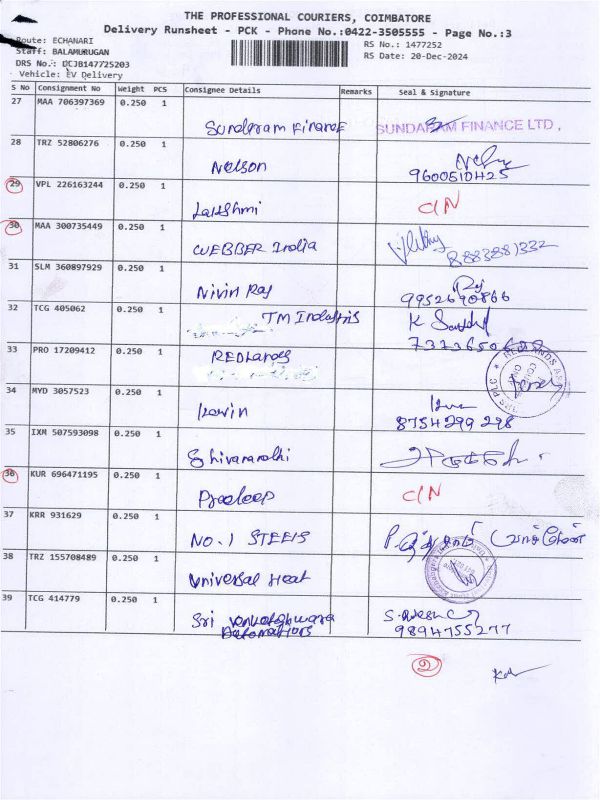 THE PROFESSIONAL COURIERS, COIMBATORE
Delivery Runsheet - PCK - Phone No.:0422-3505555 - Page No.:3
Route: ECHANARI
Staff: BALAMURUGAN
DRS No.: DCJB147725203
Vehicle: EV Delivery
RS No.: 1477252
RS Date: 20-Dec-2024
S No Consignment No Weight PCS Consignee Details Remarks Seal & Signature
27 MAA 706397369 0.250 1
Sundaram Finance SUNDARAM FINANCE LTD.
28 TRZ 52806276 0.250 1
Nelson 9600510425
29 VPL 226163244 0.250 1
Lakshmi C/N
30 MAA 300735449 0.250 1
WEBBER India 8883881332
31 SLM 360897929 0.250 1
Nivin Raj 9952690866
32 TCG 405062 0.250 1
TM Industris K
33 PRO 17209412 0.250 1
REDLands
34 MYD 3057523 0.250 1
Kavin 8754299298
35 IXM 507593098 0.250 1
36 KUR 696471195 0.250 1
Pradeep C/N
37 KRR 931629 0.250 1
NO.1 STEELS
38 TRZ 155708489 0.250 1
Universal Heat
39 TCG 414779 0.250 1
Sri Venkateshwara
9894755277
2